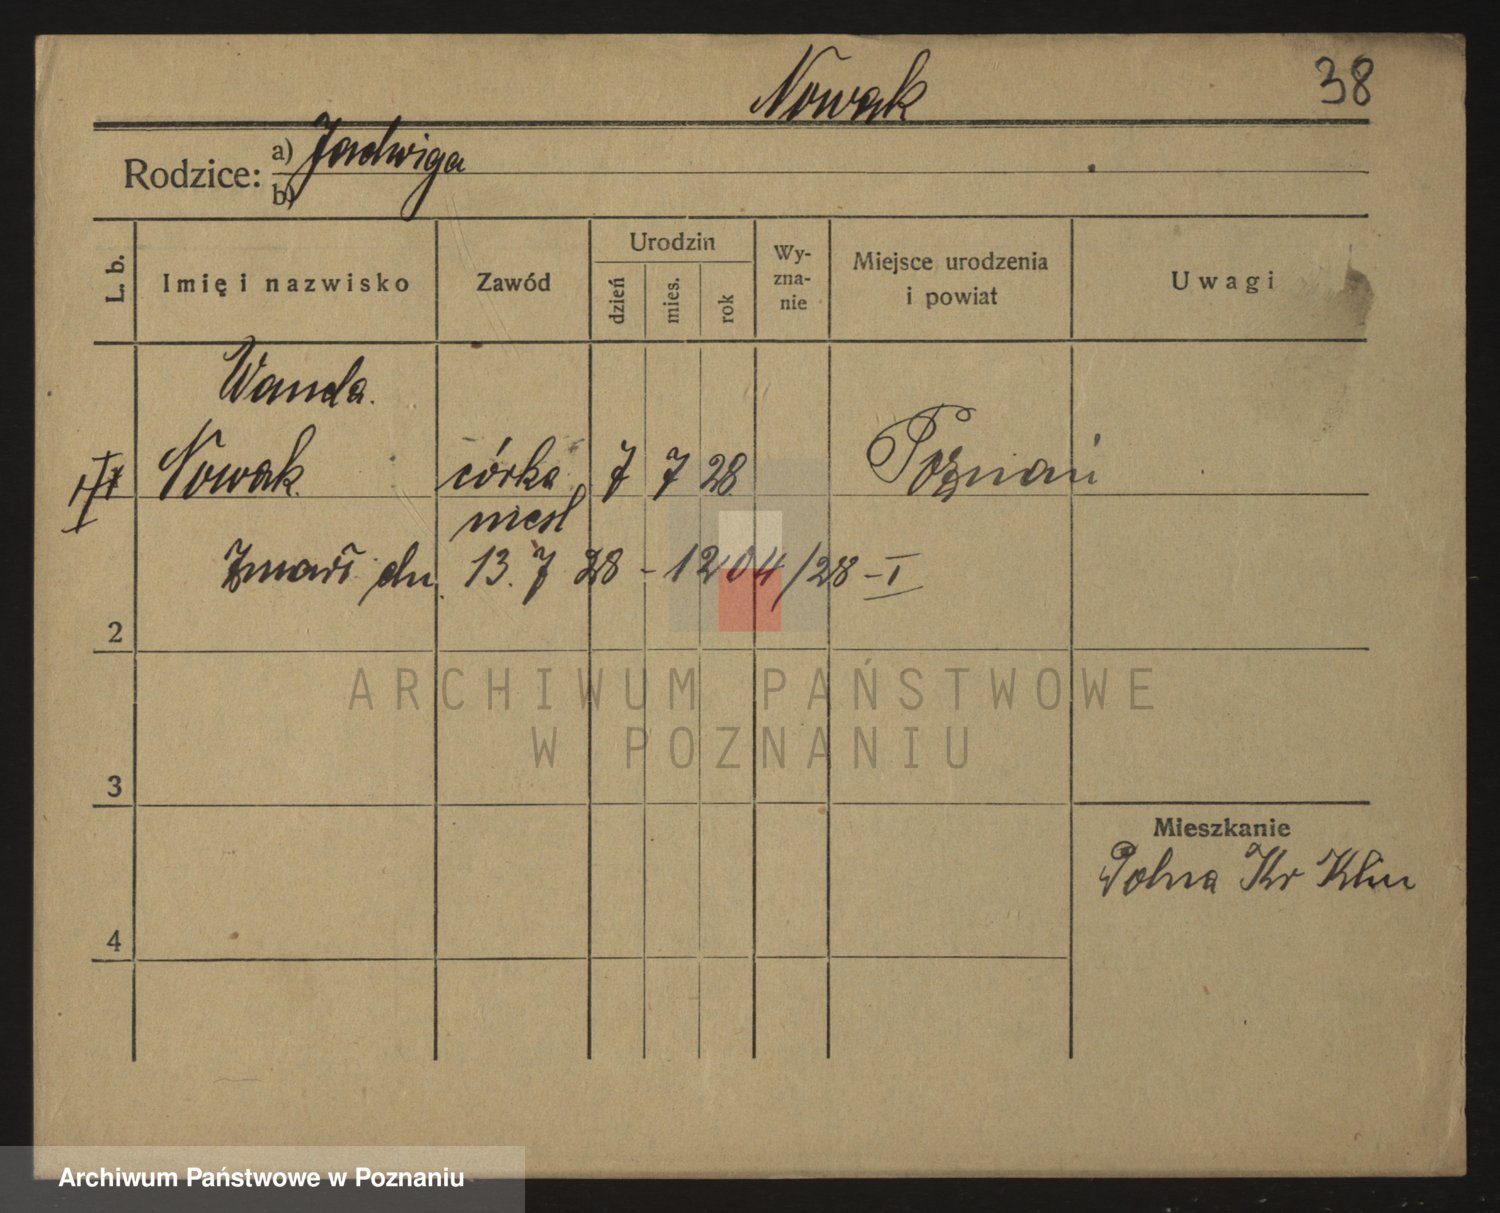 Nowak
38
Rodzice:
a) Jadwiga
b)
L. b.
Imię i nazwisko
Zawód
Urodzin
dzień
mies.
rok
Wy-
zna-
nie
Miejsce urodzenia
i powiat
Uwagi
Wanda.
Nowak
córka
7 7 28
Poznań
niesl
dn. 13. 7 28 - 1204/28 - I
2
3
4
Mieszkanie
Polna Kr Klin
ARCHIWUM PAŃSTWOWE
W POZNANIU
Archiwum Państwowe w Poznaniu